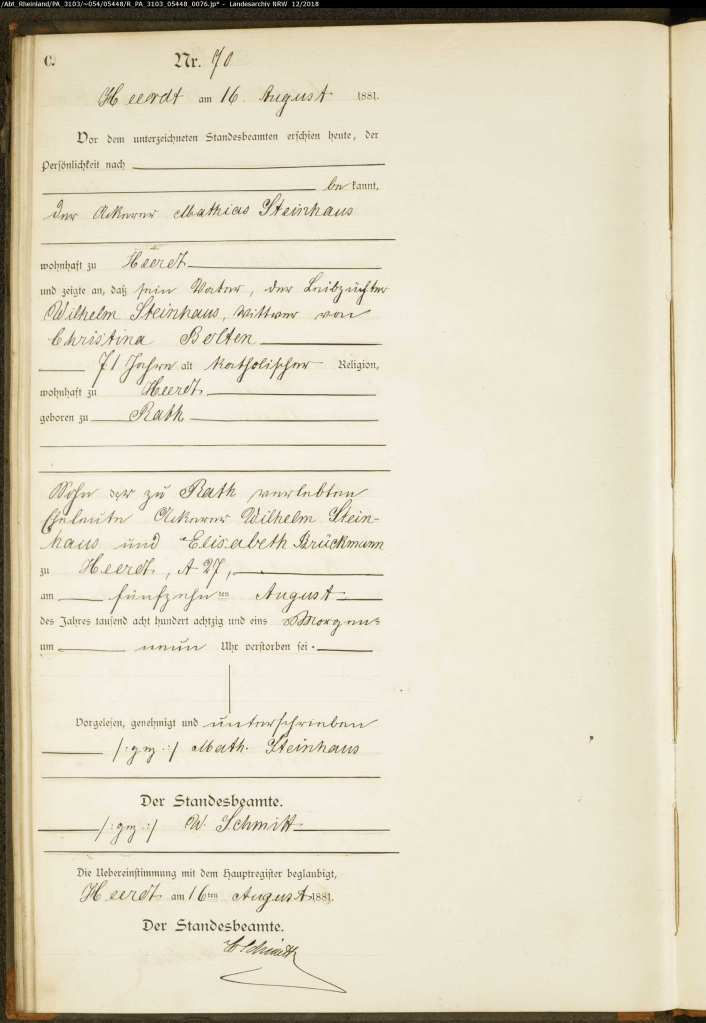 /Abt_Rheinland/PA_3103/~054/05448/R_PA_3103_05448_0076.jp* - Landesarchiv NRW 12/2018
C.
Nr. 70
Heerdt am 16. August 1881.
Vor dem unterzeichneten Standesbeamten erschien heute, der
Persönlichkeit nach
be kannt,
der Ackerer Mathias Steinhaus
wohnhaft zu Heerdt
und zeigte an, daß sein Vater, der Leibzüchter
Wilhelm Steinhaus, Wittwer von
Christina Bolten
71 Jahre alt katholischer Religion,
wohnhaft zu Heerdt
geboren zu Rath
Sohn der zu Rath verlebten
Eheleute Ackerer Wilhelm Stein-
haus und Elisabeth Brückmann
zu Heerdt, A 27,
am fünfzehn ten August
des Jahres tausend acht hundert achtzig und eins Morgens
um neun Uhr verstorben sei.
Vorgelesen, genehmigt und unterschrieben
/:gez.:/ Math. Steinhaus
Der Standesbeamte.
/:gez.:/ W. Schmitt
Die Uebereinstimmung mit dem Hauptregister beglaubigt,
Heerdt am 16ten August 1881.
Der Standesbeamte.
W Schmitt